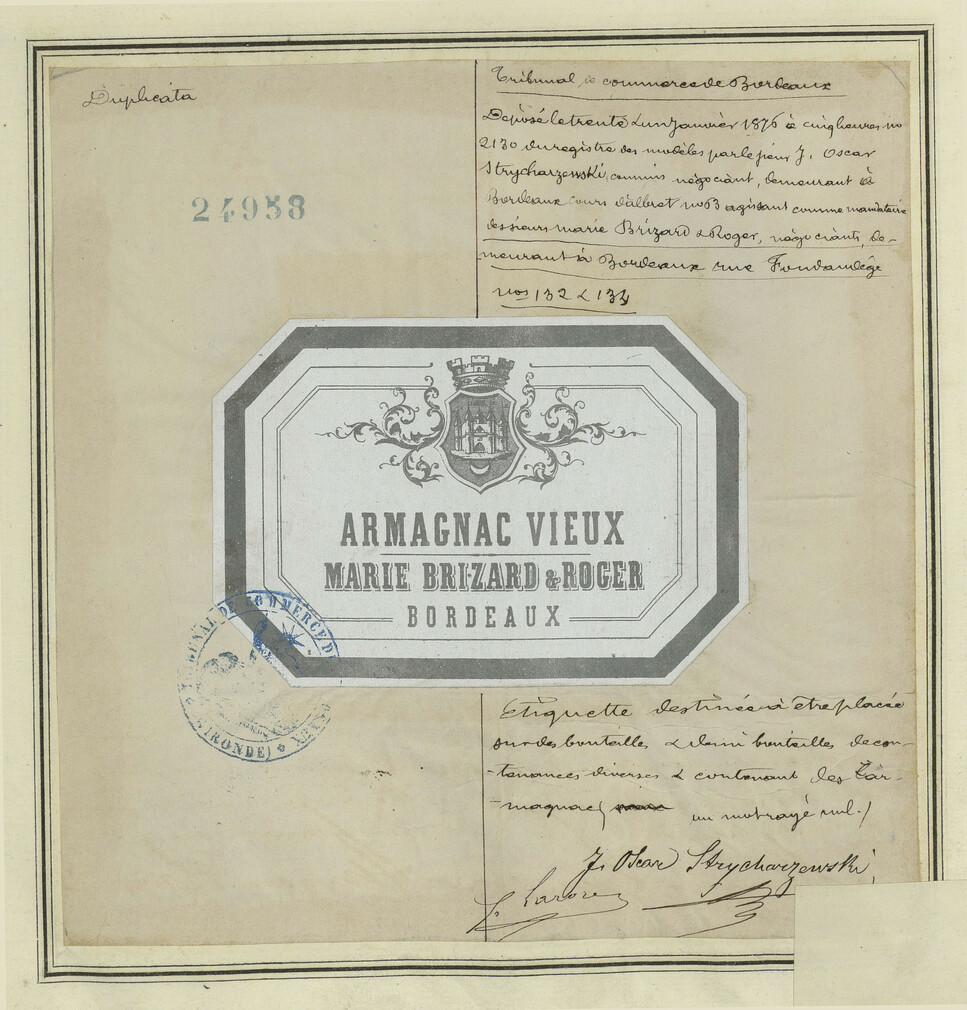 Duplicata
24958
Tribunal de commerce de Bordeaux
Déposé le trente & un Janvier 1876 à cinq heures no
2130 du registre des modèles par le sieur J. Oscar
Strycharzewski, commis négociant, demeurant à
Bordeaux cours d'albret no 63 agissant comme mandataire
des sieurs marie Brizard & Roger, négociants, de-
meurant à Bordeaux rue Fondaudége
nos 132 & 134
ARMAGNAC VIEUX
MARIE BRIZARD & ROGER
BORDEAUX
TRIBUNAL DE COMMERCE DE BORDEAUX
(GIRONDE)
Etiquette destinée à être placée
sur des bouteilles & demi bouteilles de con-
-tenances diverses & contenant de l'ar-
-magnac (un mot rayé nul.)
J. Oscar Strycharzewski